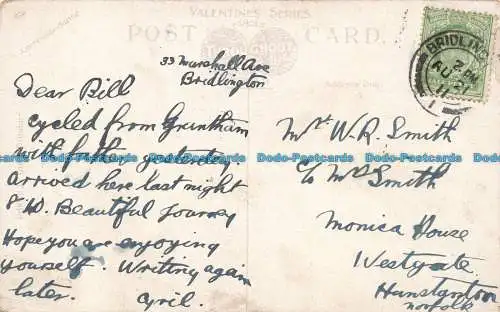 VALENTINES SERIES
POST CARD.
33 Marshall Ave
Bridlington
Dear Bill
cycled from Grantham
with father yesterday
arrived here last night
8.40. Beautiful journey
Hope you are enjoying
yourself. Writing again
later. Cyril.
BRIDLING
2 PM
AU 21
11
1
Mr W. R. Smith
c/o Mrs Smith
Monica House
Westgate
Hunstanton
Norfolk
Dodo-Postcards Dodo-Postcards Dodo-Postcards Dodo-Postcards Dodo-Postcards